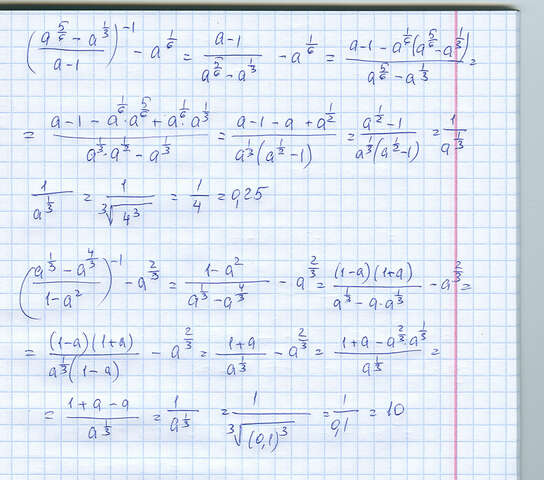 ((a^(5/6) - a^(1/3))/(a-1))^(-1) - a^(1/6) = (a-1)/(a^(5/6) - a^(1/3)) - a^(1/6) = (a-1-a^(1/6)(a^(5/6) - a^(1/3)))/(a^(5/6) - a^(1/3)) =
= (a-1-a^(1/6)·a^(5/6) + a^(1/6)·a^(1/3))/(a^(1/3)·a^(1/2) - a^(1/3)) = (a-1-a+a^(1/2))/(a^(1/3)(a^(1/2)-1)) = (a^(1/2)-1)/(a^(1/3)(a^(1/2)-1)) = 1/a^(1/3)
1/a^(1/3) = 1/∛(4^3) = 1/4 = 0,25
((a^(1/3) - a^(4/3))/(1-a^2))^(-1) - a^(2/3) = (1-a^2)/(a^(1/3) - a^(4/3)) - a^(2/3) = ((1-a)(1+a))/(a^(1/3) - a·a^(1/3)) - a^(2/3) =
= ((1-a)(1+a))/(a^(1/3)(1-a)) - a^(2/3) = (1+a)/a^(1/3) - a^(2/3) = (1+a-a^(2/3)·a^(1/3))/a^(1/3) =
= (1+a-a)/a^(1/3) = 1/a^(1/3) = 1/∛((0,1)^3) = 1/0,1 = 10